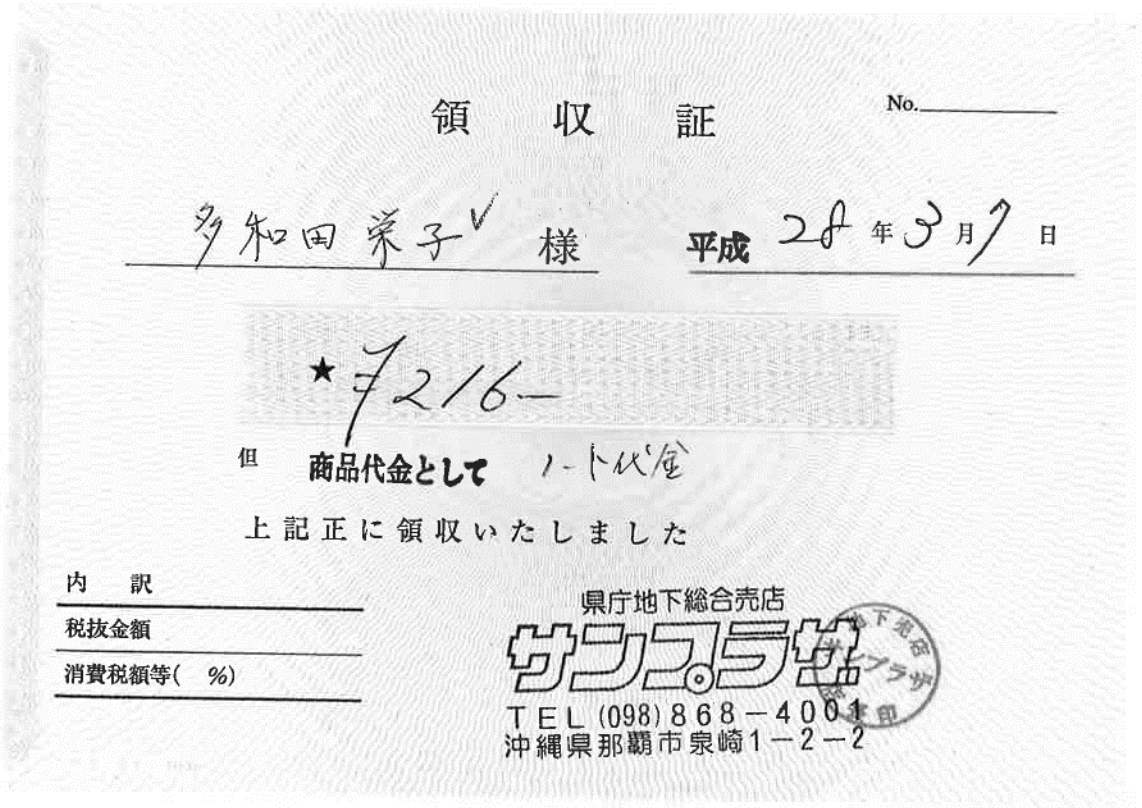 領収証
No.
多和田栄子 様
平成 28年3月7日
★¥216—
但 商品代金として ノート代金
上記正に領収いたしました
内訳
税抜金額
消費税額等( %)
県庁地下総合売店
サンプラザ
TEL(098)868-4001
沖縄県那覇市泉崎1-2-2
地下売店
サンプラザ
印